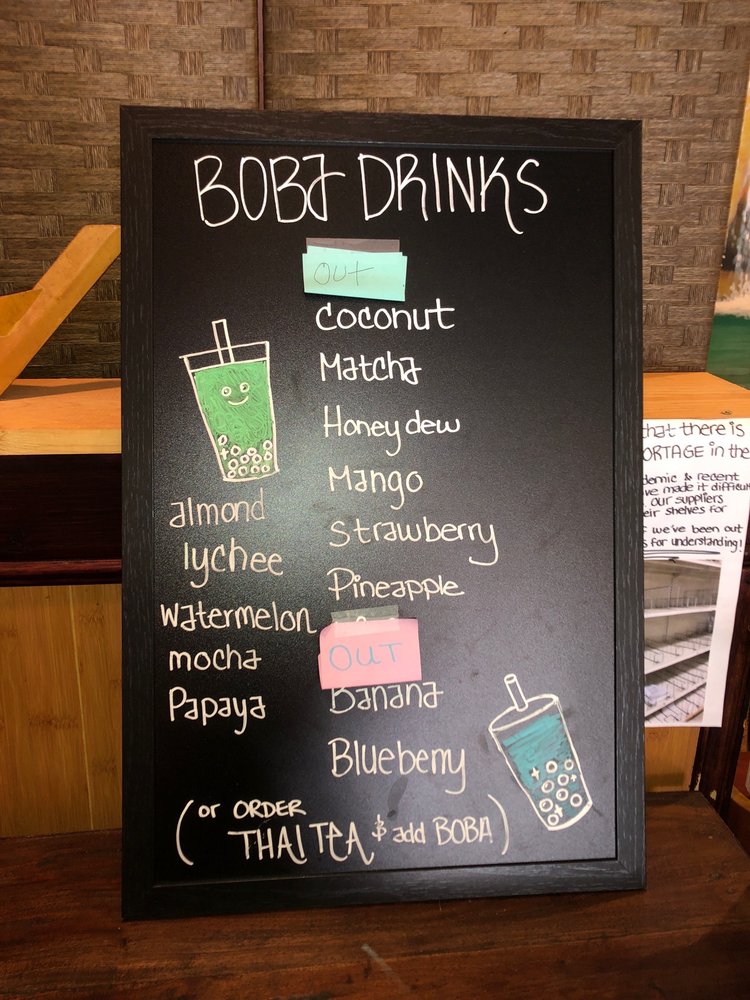 BOBA DRINKS
OUT
coconut
Matcha
Honeydew
Mango
Strawberry
Pineapple
OUT
Banana
Blueberry
almond
lychee
watermelon
mocha
Papaya
(or ORDER
THAI TEA & add BOBA)
that there is
ORTAGE in the
demic & recent
ve made it difficul
our suppliers
eir shelves for
we've been out
s for understanding!